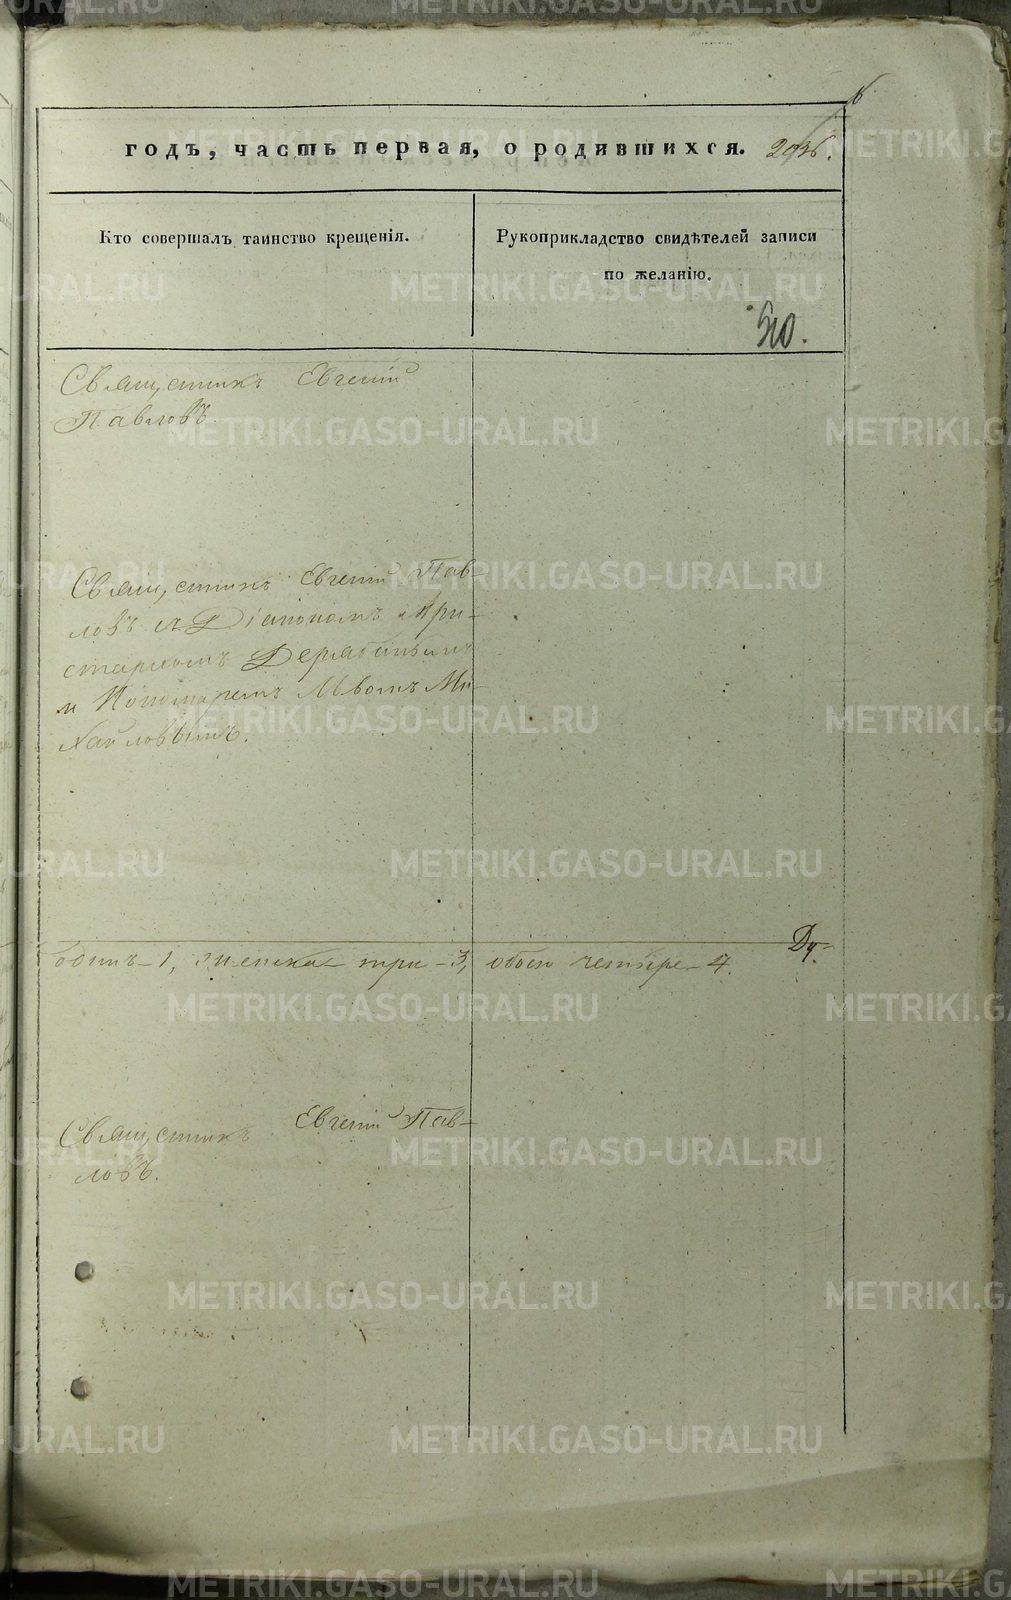 годъ, часть первая, о родившихся.
Кто совершалъ таинство крещенія.
Рукоприкладство свидѣтелей записи
по желанію.
510.
Священникъ Евгеній
Павловъ.
Священникъ Евгеній Пав-
ловъ съ Діакономъ Ари-
стархомъ Дерябинымъ
и Пономаремъ Львомъ Ми-
хайловымъ.
одинъ – 1, женска три – 3, обоего четыре – 4.
Священникъ Евгеній Пав-
ловъ.
METRIKI.GASO-URAL.RU